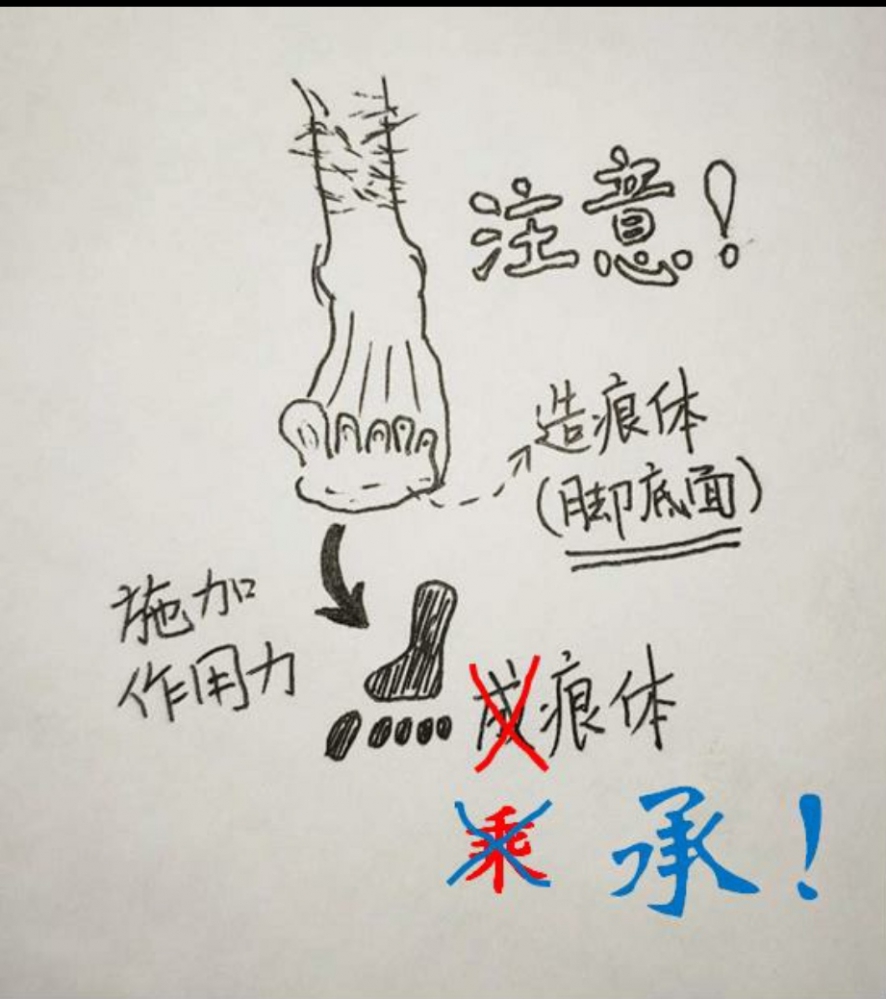 注意!
造痕体
(脚底面)
施加
作用力
成痕体
乘 承!